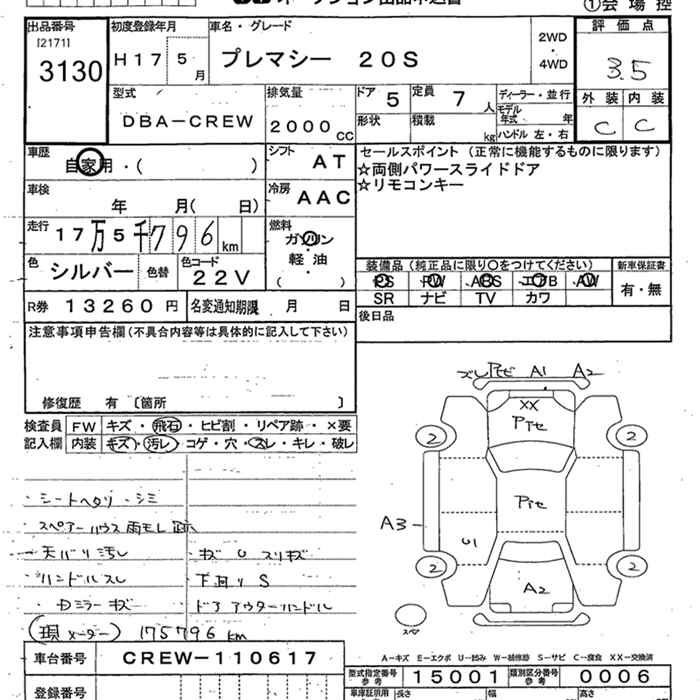 ①会場控
出品番号 初度登録年月 車名・グレード 2WD ・ 4WD 評価点
[2171]
3130 H17 5月 プレマシー 20S 3.5
型式 排気量 ドア 5 定員 7人 ディーラー・並行 外装 内装
DBA-CREW 2000CC 形状 積載 kg モデル年式 年 C C
ハンドル 左・右
車歴 自家用・( ) シフト AT セールスポイント (正常に機能するものに限ります)
☆両側パワースライドドア
☆リモコンキー
車検 年 月( 日) 冷房 AAC
走行 17万5千796km 燃料 ガソリン・軽油( )
色 シルバー 色替 色コード 22V 装備品(純正品に限り○をつけてください) 新車保証書
PS PW ABS エアB AW 有・無
SR ナビ TV カワ
R券 13260円 名変通知期限 月 日 後日品
注意事項申告欄(不具合内容等は具体的に記入して下さい)
修復歴 有 〔箇所 〕
検査員記入欄 FW キズ・飛石・ヒビ割・リペア跡・×要
内装 キズ・汚レ・コゲ・穴・スレ・キレ・破レ
・シートヘタリ・シミ
・スペアーハウス雨モレ跡
・天バリ汚レ ・キズ U スリキズ
・ハンドルスレ ・下廻り S
・Dミラーキズ ・ドアアウターハンドル
(現メーター) 175796 km
ズレ Pセビ A1 A2
XX
Pテセ
2 2
Pテセ
A3
U1
2 2
A2
スペア
A-キズ E-エクボ U-凹み W-補修跡 S-サビ C-腐食 XX-交換済
車台番号 CREW-110617
型式指定番号 参考 15001 類別区分番号 参考 0006
登録番号 車庫証明用 参考 長さ 幅 高さ